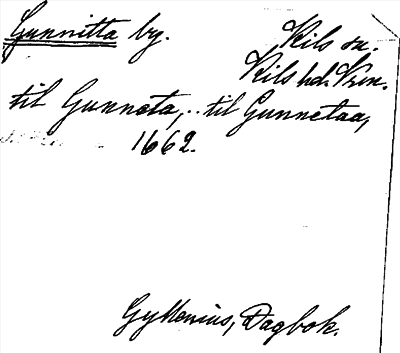 Gunnitta by.
Kils sn.
Kils hd. Vrm.
til Gunnota, .. til Gunnetaa,
1662.
Gyllenius, Dagbok.